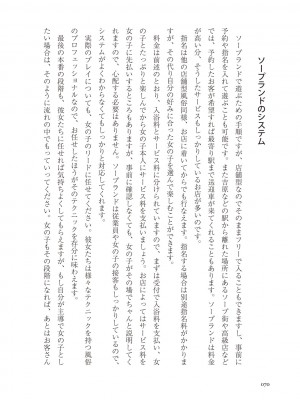 ソープランドのシステム
ソープランドで遊ぶための手順ですが、店舗型なのでそのままフリーで入ることもできますし、事前に
予約や指名を入れて遊ぶことも可能です。また吉原などの駅から離れた場所にあるソープ街や高級店など
では、予約したお客が希望すれば最寄り駅まで送迎車が来てくれることもあります。ソープランドは料金
が高い分、そうしたサービスもしっかりしているお店が多いのです。
指名は他の店舗型風俗同様、お店に着いてからでも行えます。指名する場合は別途指名料がかかりま
すが、その代り自分の好みに合った女の子を選んで楽しむことができます。
料金は前述のとおり、入浴料とサービス料に分けられていますので、まずは受付で入浴料を支払い、女
の子とたっぷりと楽しんでから女の子本人にサービス料を支払いましょう。お店によってはサービス料を
女の子に先払いするところもありますが、事前に確認しなくても、女の子がその場でちゃんと説明してく
れますので、心配する必要はありません。ソープランドは従業員や女の子の接客もしっかりしているので、
システムがよくわからなくてもしっかりと対応してくれます。
実際のプレイについても、女の子のリードに任せてください。彼女たちは様々なテクニックを持つ風俗
のプロフェッショナルなので、お任せしたほうがそのテクニックを存分に味わえます。
最後の本番の段階も、彼女たちに任せれば気持ちよくしてもらえますが、もし自分が主導で女の子とし
たい場合は、そのように流れの中でもっていってください。女の子もその段階になれば、あとはお客さん
070